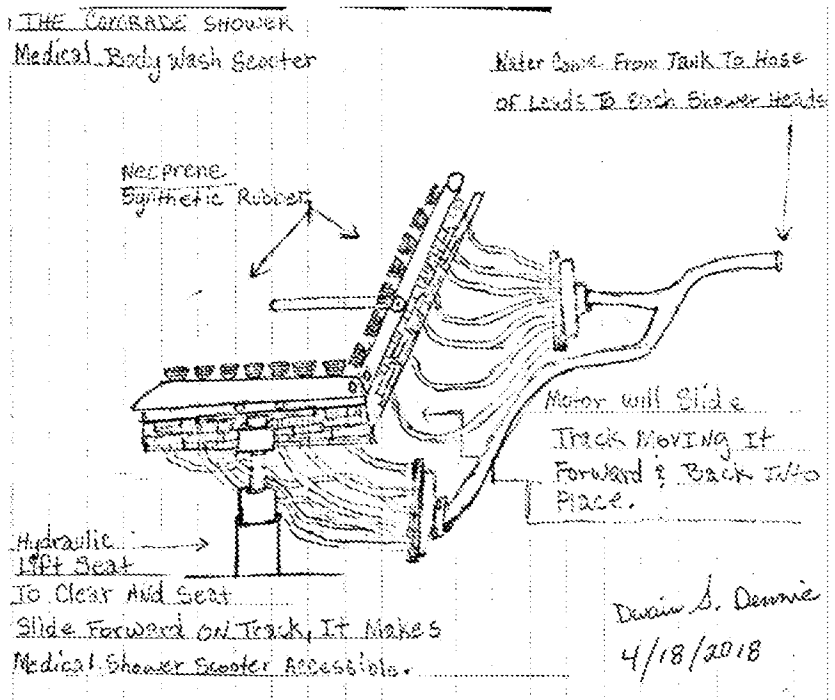 THE COMRADE SHOWER
Medical Body Wash Scooter
Water Come From Tank To Hose
of Leads To Each Shower Heads
Neoprene
Synthetic Rubber
Motor will Slide
Track Moving It
Forward & Back Into
Place.
Hydraulic
Lift Seat
To Clear And Seat
Slide Forward ON Track, It Makes
Medical Shower Scooter Accessible.
Dwain S. Dennie
4/18/2018